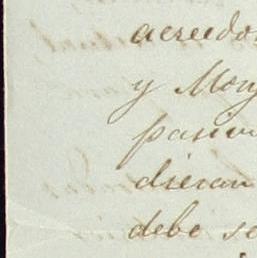 acreedo
y Mon
pasiv
dieran
debe se